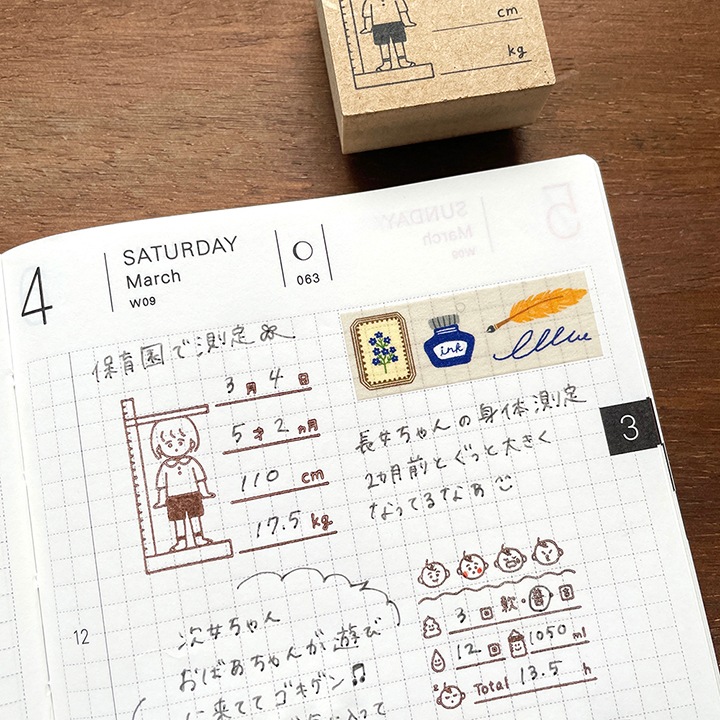 cm
kg
4
SATURDAY
March
W09
063
SUNDAY
March
W09
5
保育園で測定
3月4日
5才2ヵ月
110 cm
17.5 kg
ink
長女ちゃんの身体測定
2ヵ月前とぐっと大きく
なってるなあ
3
12
次女ちゃん
おばあちゃんが遊び
に来ててゴキゲン♫
入って
3回 軟・普・固
12回 1050 ml
Total 13.5 h